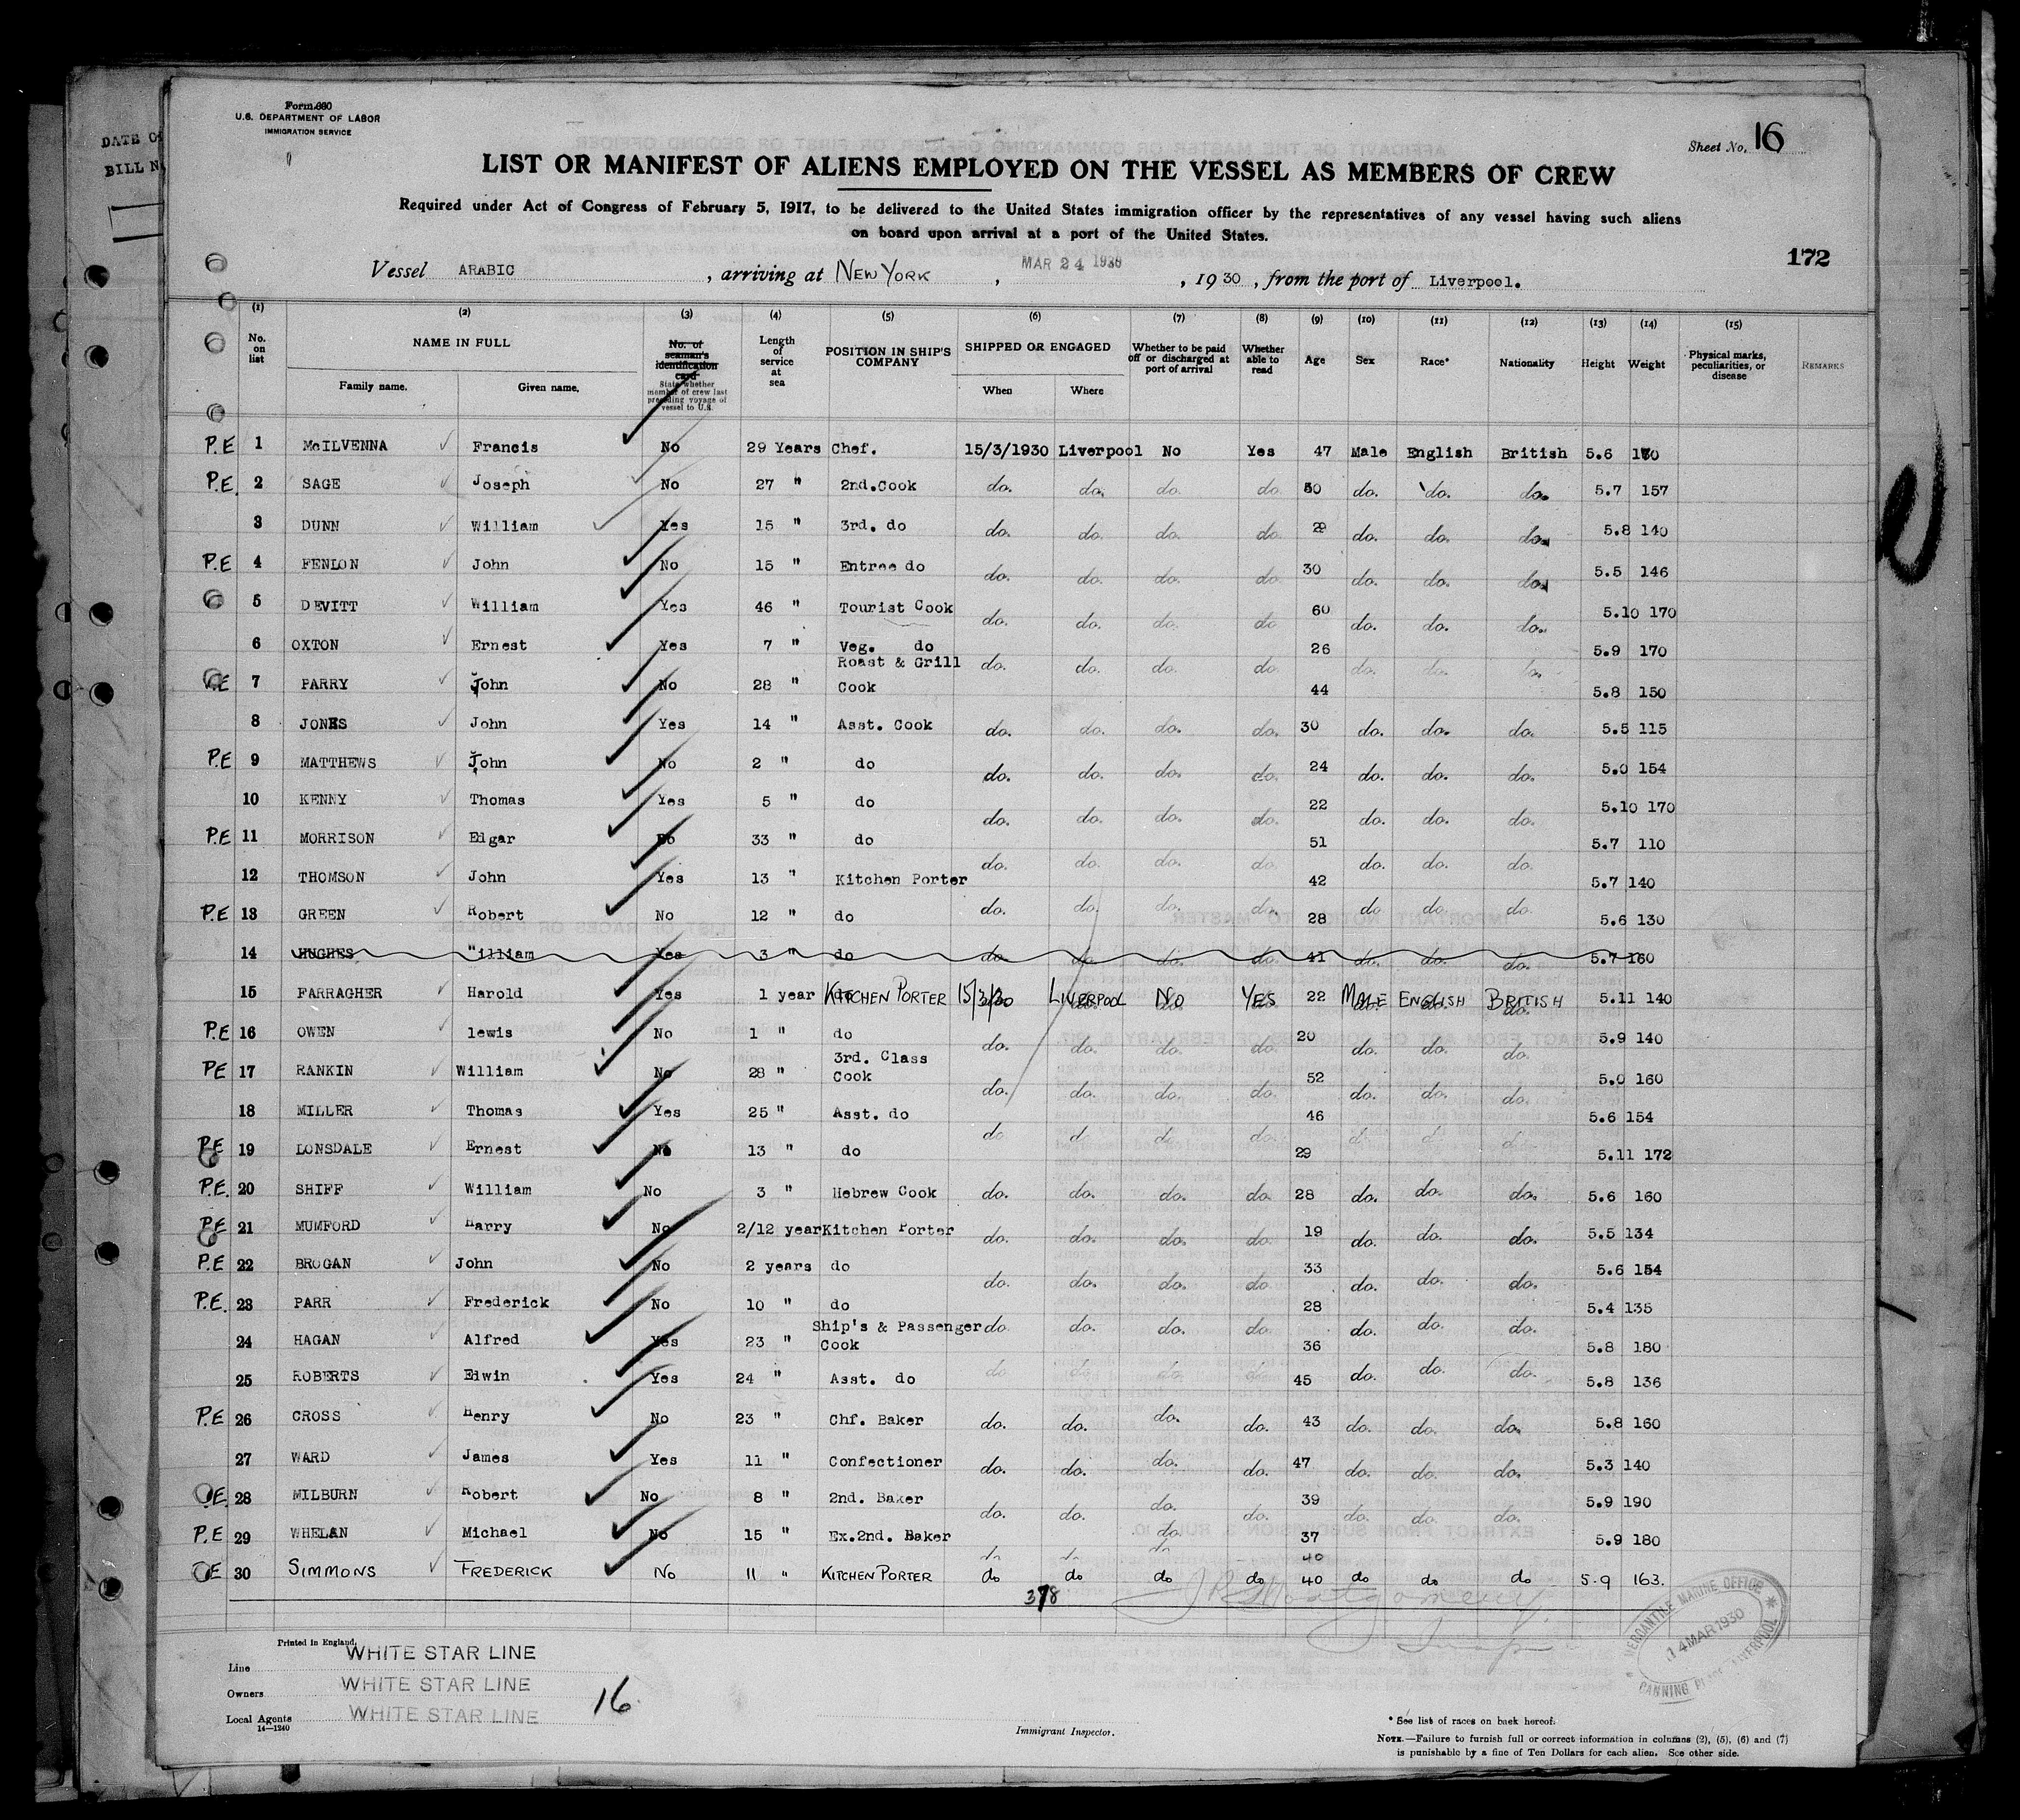 DATE OF
BILL N
Form 680
U.S. DEPARTMENT OF LABOR
IMMIGRATION SERVICE
Sheet No. 16
LIST OR MANIFEST OF ALIENS EMPLOYED ON THE VESSEL AS MEMBERS OF CREW
Required under Act of Congress of February 5, 1917, to be delivered to the United States immigration officer by the representatives of any vessel having such aliens
on board upon arrival at a port of the United States.
172
Vessel ARABIC, arriving at NEW YORK, MAR 24 1930, 1930, from the port of Liverpool.
(1) (2) (3) (4) (5) (6) (7) (8) (9) (10) (11) (12) (13) (14) (15)
No. on list NAME IN FULL Family name. Given name. No. of seaman's identification card State whether member of crew last preceding voyage of vessel to U.S. Length of service at sea POSITION IN SHIP'S COMPANY SHIPPED OR ENGAGED When Where Whether to be paid off or discharged at port of arrival Whether able to read Age Sex Race* Nationality Height Weight Physical marks, peculiarities, or disease REMARKS
P.E 1 McILVENNA Francis No 29 Years Chef. 15/3/1930 Liverpool No Yes 47 Male English British 5.6 170
P.E. 2 SAGE Joseph No 27 " 2nd.Cook do. do. do. do. 50 do. do. do. 5.7 157
3 DUNN William Yes 15 " 3rd. do do. do. do. do. 29 do. do. do. 5.8 140
P.E 4 FENLON John No 15 " Entree do do. do. do. do. 30 do. do. do. 5.5 146
5 DEVITT William Yes 46 " Tourist Cook do. do. do. do 60 do. do. do. 5.10 170
6 OXTON Ernest Yes 7 " Veg. do do. do. do. do. 26 do. do. do. 5.9 170
P.E 7 PARRY John No 28 " Roast & Grill Cook 44 5.8 150
8 JONES John Yes 14 " Asst. Cook do. do. do. do. 30 do. do. do. 5.5 115
P.E 9 MATTHEWS John No 2 " do do. do. do. do. 24 do. do. do. 5.0 154
10 KENNY Thomas Yes 5 " do do. do. do. do. 22 do. do. do. 5.10 170
P.E 11 MORRISON Edgar No 33 " do do. do. do. do. 51 do. do. do. 5.7 110
12 THOMSON John Yes 13 " Kitchen Porter 42 5.7 140
P.E 13 GREEN Robert No 12 " do do. do. do. do. 28 do do. do. 5.6 130
14 HUGHES William Yes 3 " do do. do. do. do. 41 do. do. do. 5.7 160
15 FARRAGHER Harold Yes 1 year KITCHEN PORTER 15/3/30 LIVERPOOL NO YES 22 MALE ENGLISH BRITISH 5.11 140
P.E 16 OWEN lewis No 1 " do do. do. do. do. 20 do. do. do. 5.9 140
PE 17 RANKIN William No 28 " 3rd. Class Cook do. do. do. do. 52 do. do. do. 5.0 160
18 MILLER Thomas Yes 25 " Asst. do 46 5.6 154
P.E 19 LONSDALE Ernest No 13 " do do d do do. 29 d d do 5.11 172
P.E. 20 SHIFF William No 3 " Hebrew Cook do. do. do. do. 28 do. do. do. 5.6 160
P.E 21 MUMFORD Harry No 2/12 year Kitchen Porter do. do. do. do. 19 do. do. do. 5.5 134
P.E 22 BROGAN John No 2 years do do. do. do. do. 33 do. do. do. 5.6 154
P.E. 23 PARR Frederick No 10 " do 28 5.4 135
24 HAGAN Alfred Yes 23 " Ship's & Passenger Cook do. do. do. do. 36 do. do. do. 5.8 180
25 ROBERTS Edwin Yes 24 " Asst. do do do. do. do 45 do. do. do. 5.8 136
P.E 26 CROSS Henry No 23 " Chf. Baker do. do. do. do. 43 do. do. do. 5.8 160
27 WARD James Yes 11 " Confectioner do. do. do. do. 47 do. do. do. 5.3 140
P.E. 28 MILBURN Robert No 8 " 2nd. Baker do. do. do. do. 39 do. do. do. 5.9 190
P.E 29 WHELAN Michael No 15 " Ex.2nd. Baker do. 37 5.9 180
40
P.E 30 SIMMONS FREDERICK No 11 " KITCHEN PORTER do do do do 40 do do do 5.9 163.
378
Printed in England.
Line WHITE STAR LINE
Owners WHITE STAR LINE
Local Agents WHITE STAR LINE
14—1240
16
Immigrant Inspector.
MERCANTILE MARINE OFFICE
14 MAR 1930
CANNING PLACE LIVERPOOL
* See list of races on back hereof.
NOTE.—Failure to furnish full or correct information in columns (2), (5), (6) and (7)
is punishable by a fine of Ten Dollars for each alien. See other side.